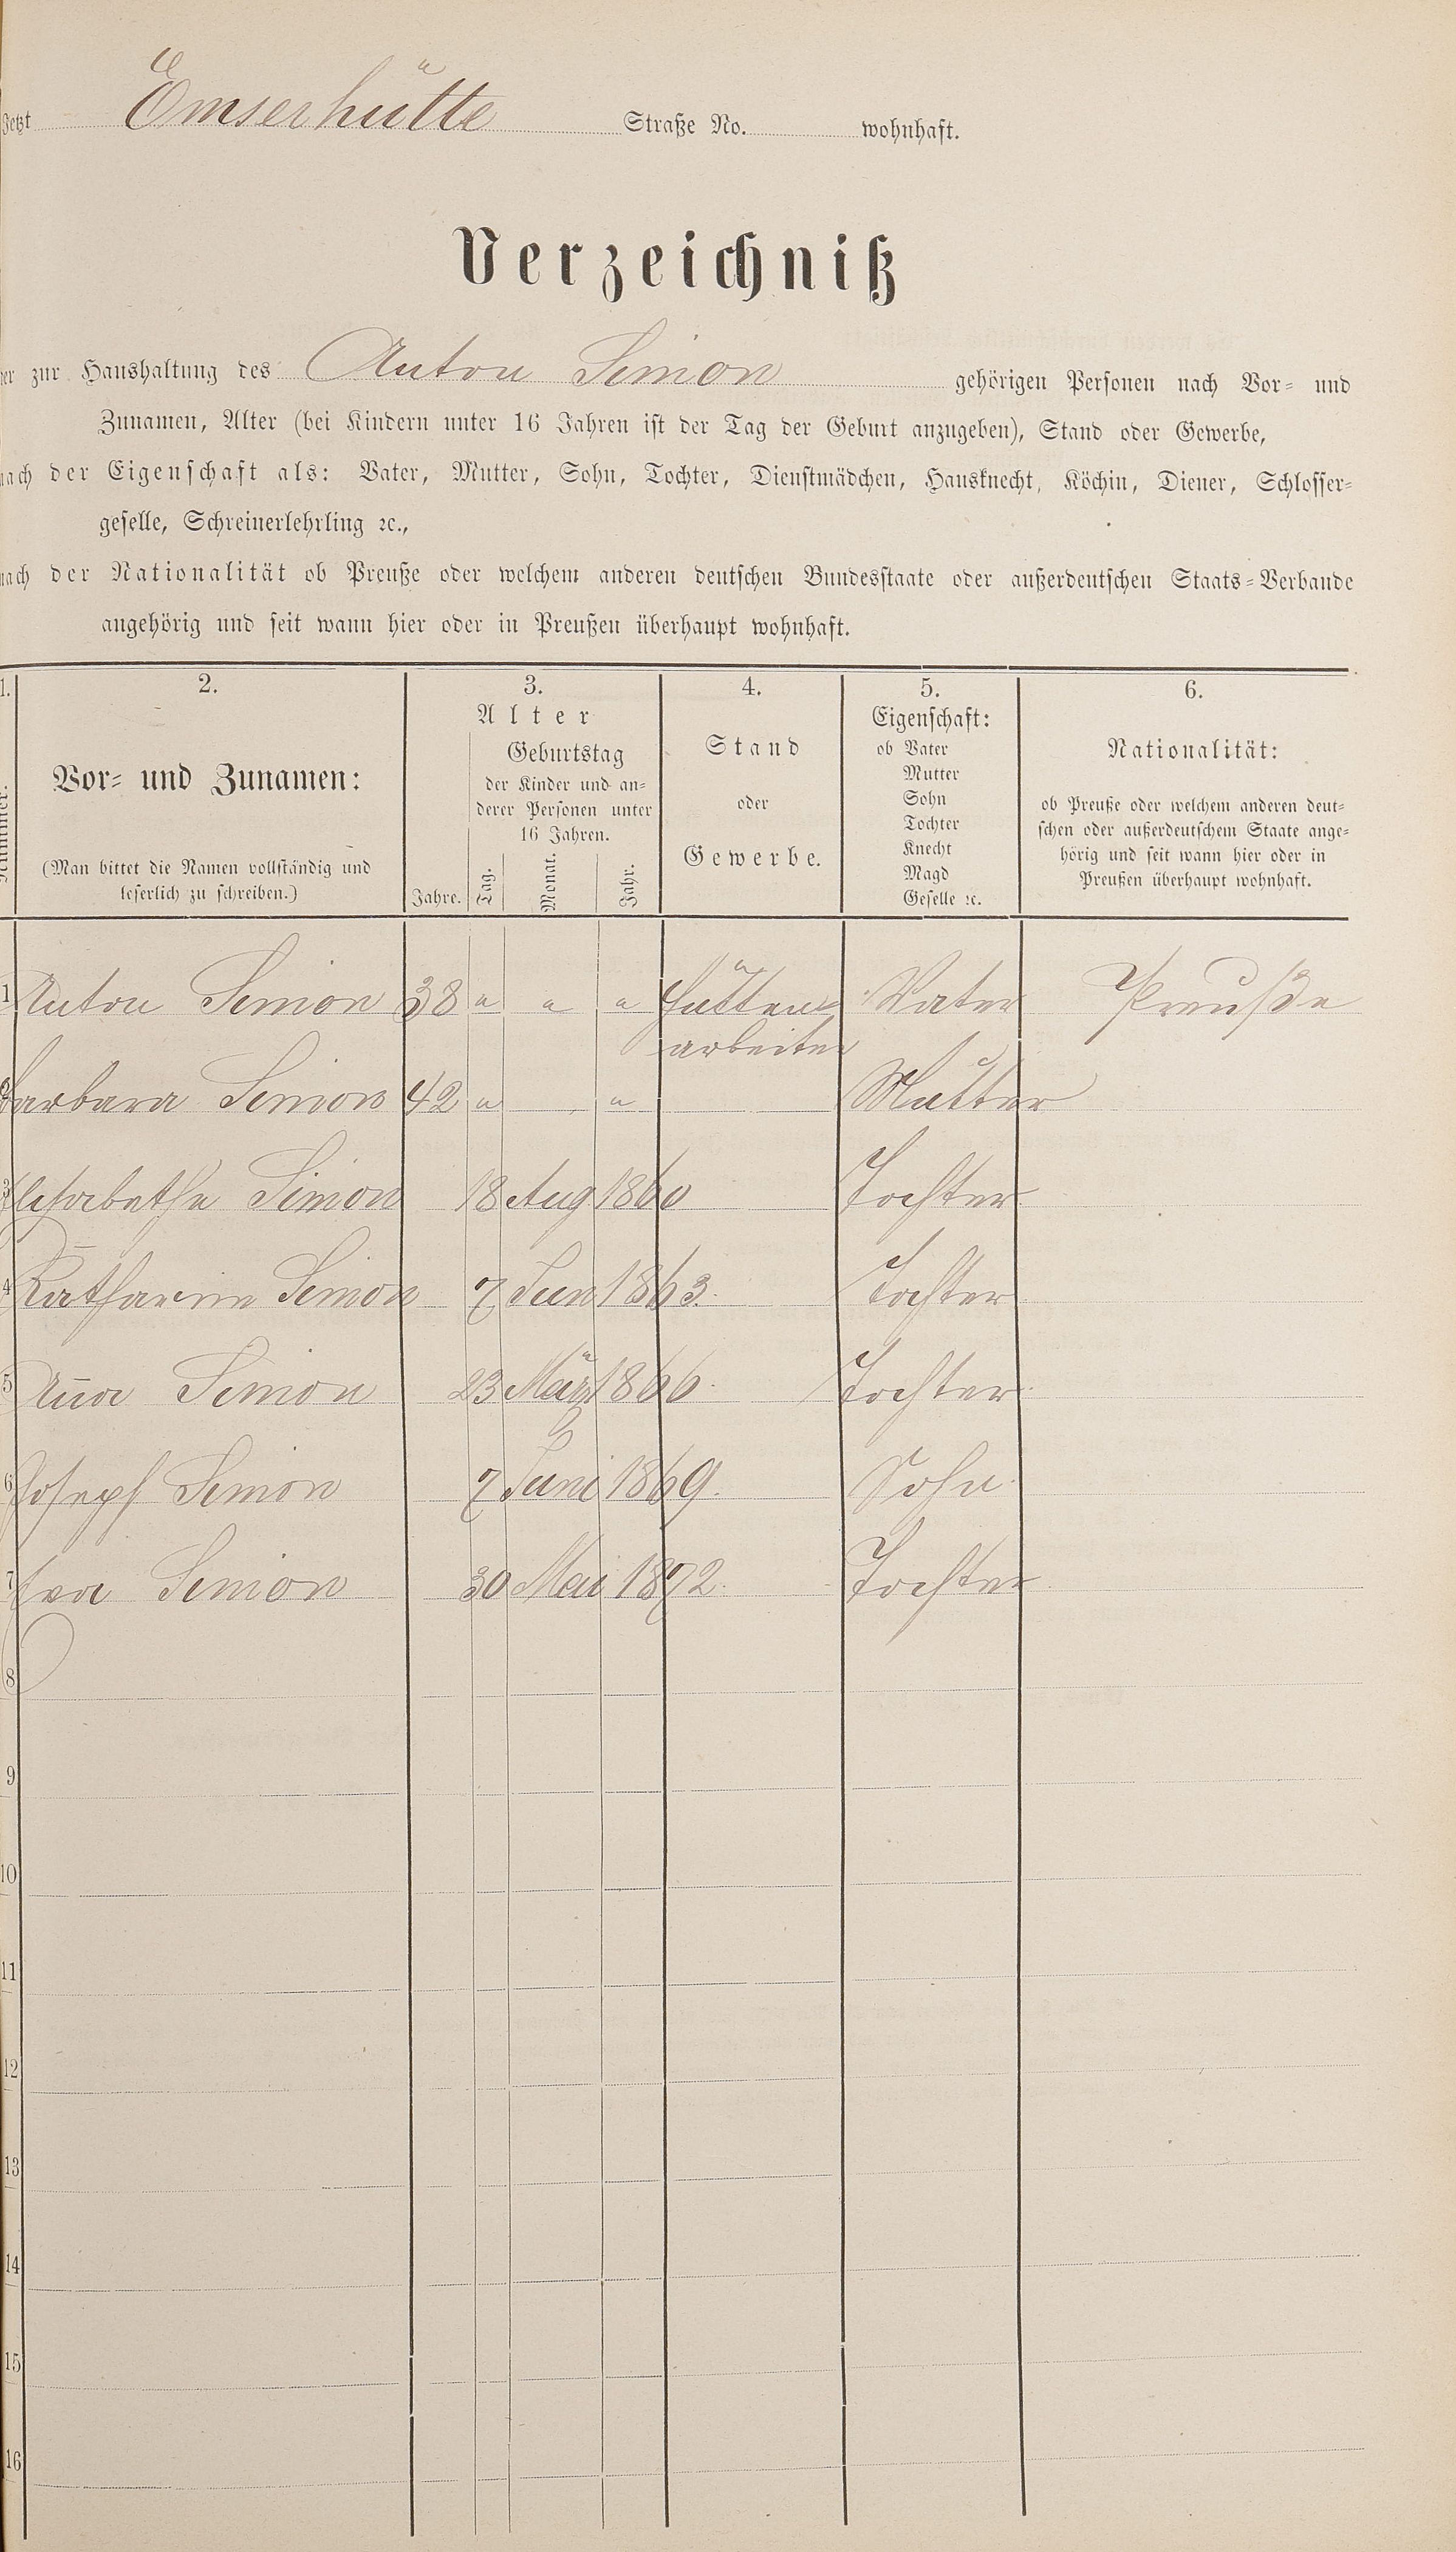 Jetzt Emserhütte Straße No. wohnhaft.
Verzeichniß
der zur Haushaltung des Anton Simon gehörigen Personen nach Vor- und
Zunamen, Alter (bei Kindern unter 16 Jahren ist der Tag der Geburt anzugeben), Stand oder Gewerbe,
nach der Eigenschaft als: Vater, Mutter, Sohn, Tochter, Dienstmädchen, Hausknecht, Köchin, Diener, Schlosser-
geselle, Schreinerlehrling ꝛc.,
nach der Nationalität ob Preuße oder welchem anderen deutschen Bundesstaate oder außerdeutschen Staats-Verbande
angehörig und seit wann hier oder in Preußen überhaupt wohnhaft.
1.
Nummer.
2.
Vor- und Zunamen:
(Man bittet die Namen vollständig und
leserlich zu schreiben.)
3.
Alter
Jahre.
Geburtstag
der Kinder und an-
derer Personen unter
16 Jahren.
Tag. Monat. Jahr.
4.
Stand
oder
Gewerbe.
5.
Eigenschaft:
ob Vater
Mutter
Sohn
Tochter
Knecht
Magd
Geselle ꝛc.
6.
Nationalität:
ob Preuße oder welchem anderen deut-
schen oder außerdeutschem Staate ange-
hörig und seit wann hier oder in
Preußen überhaupt wohnhaft.
1 Anton Simon 38 " " " Hütten- Vater Preuße
arbeiter
2 Barbara Simon 42 " " Mutter
3 Elisabetha Simon 18 Aug 1860 Tochter
4 Katharine Simon 7 Jun 1863. Tochter
5 Anna Simon 23 März 1866. Tochter
6 Joseph Simon 7 Juni 1869. Sohn
7 Eva Simon 30 Mai 1872. Tochter
8
9
10
11
12
13
14
15
16